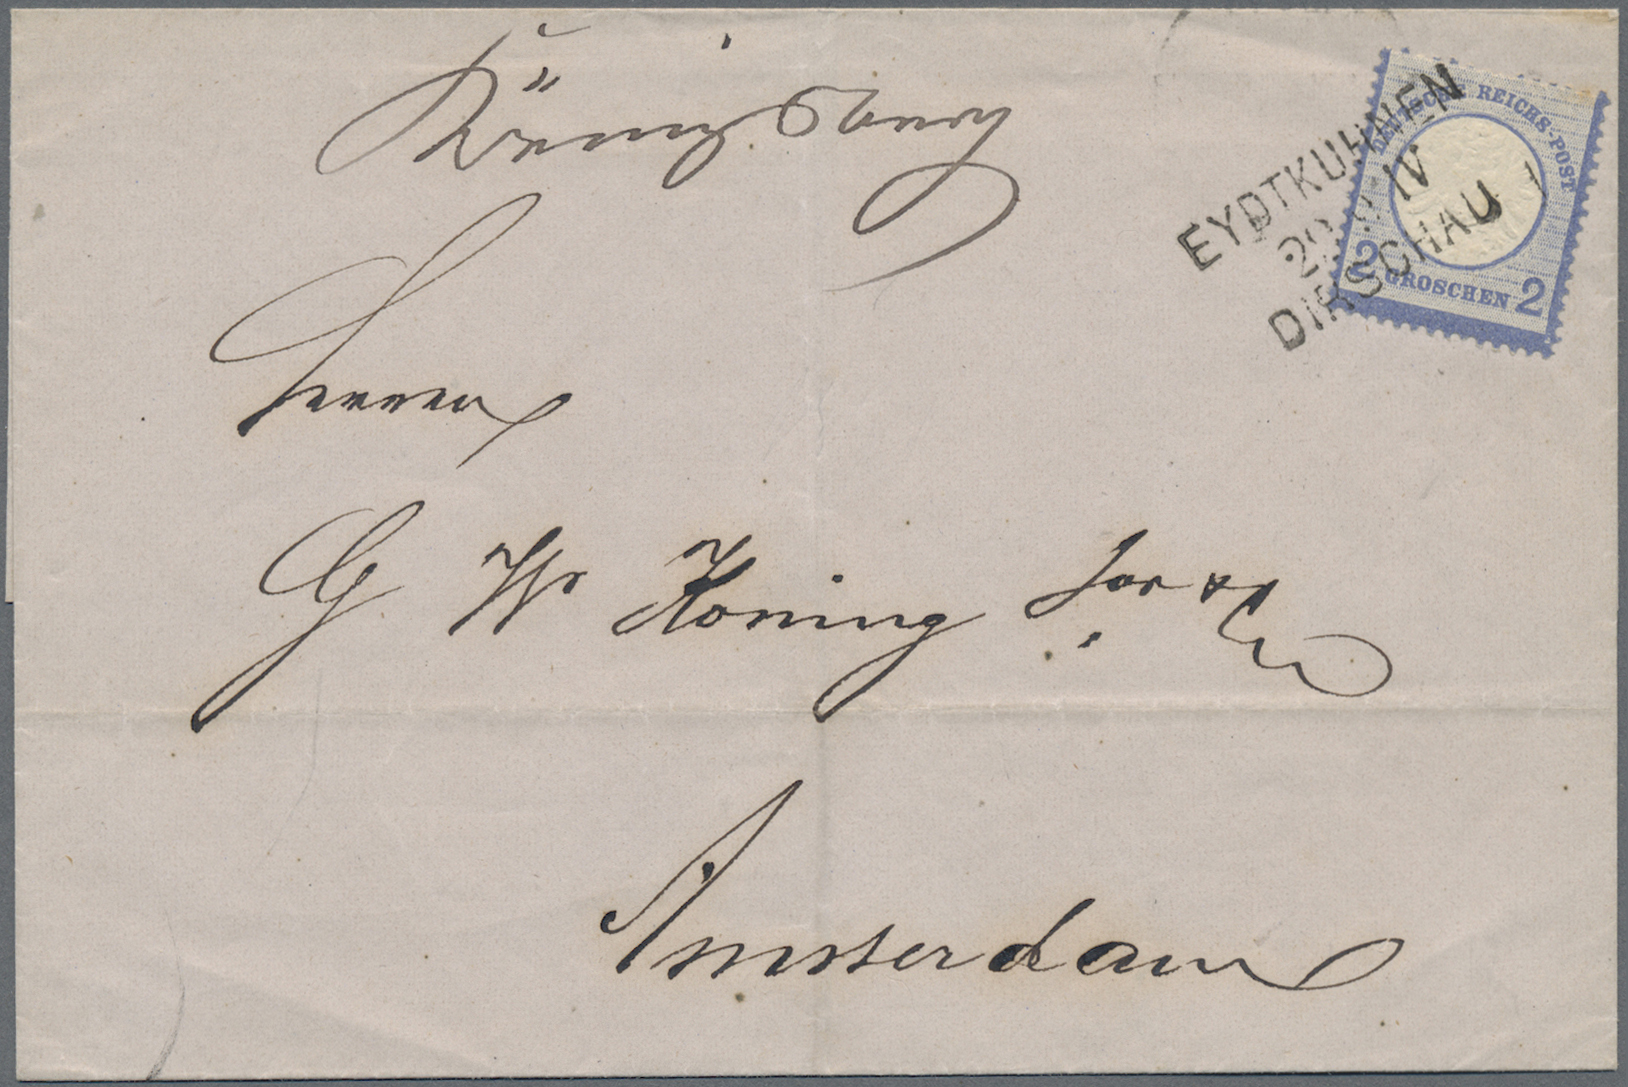 Königsberg
Herren
G W Koning
Amsterdam
EYDTKUHNEN
IV
DIRSCHAU
DEUTSCHE REICHS-POST
2 GROSCHEN 2